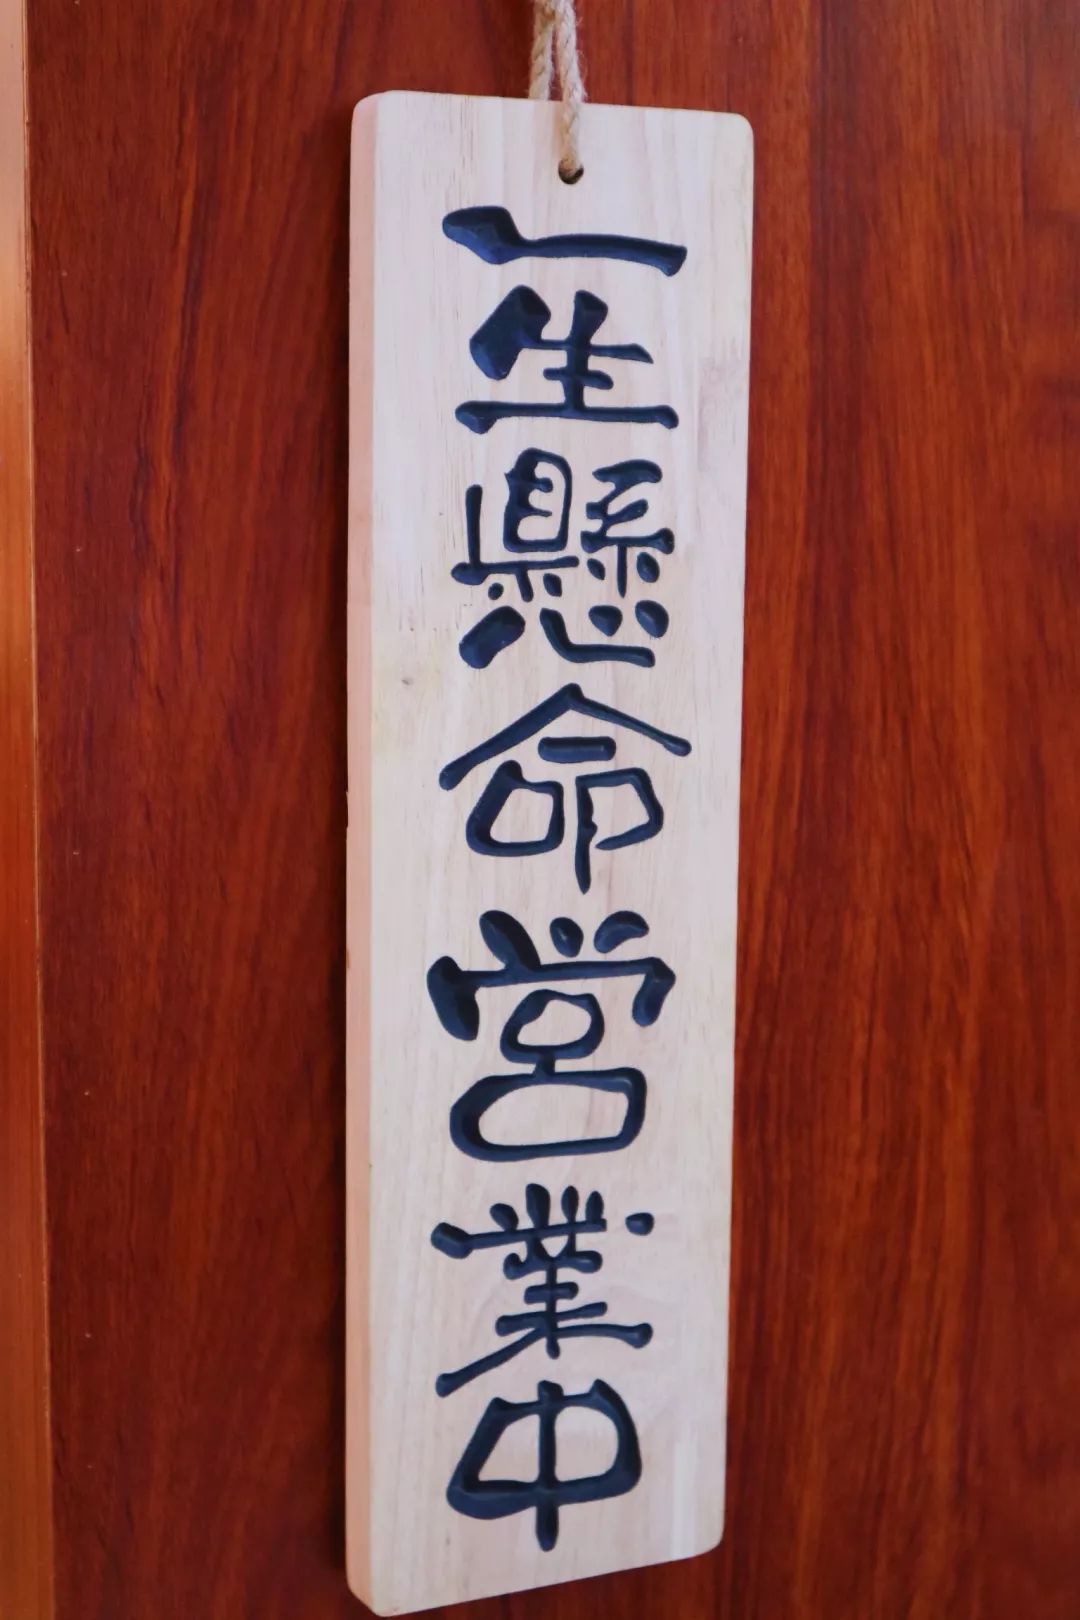 一生懸命営業中